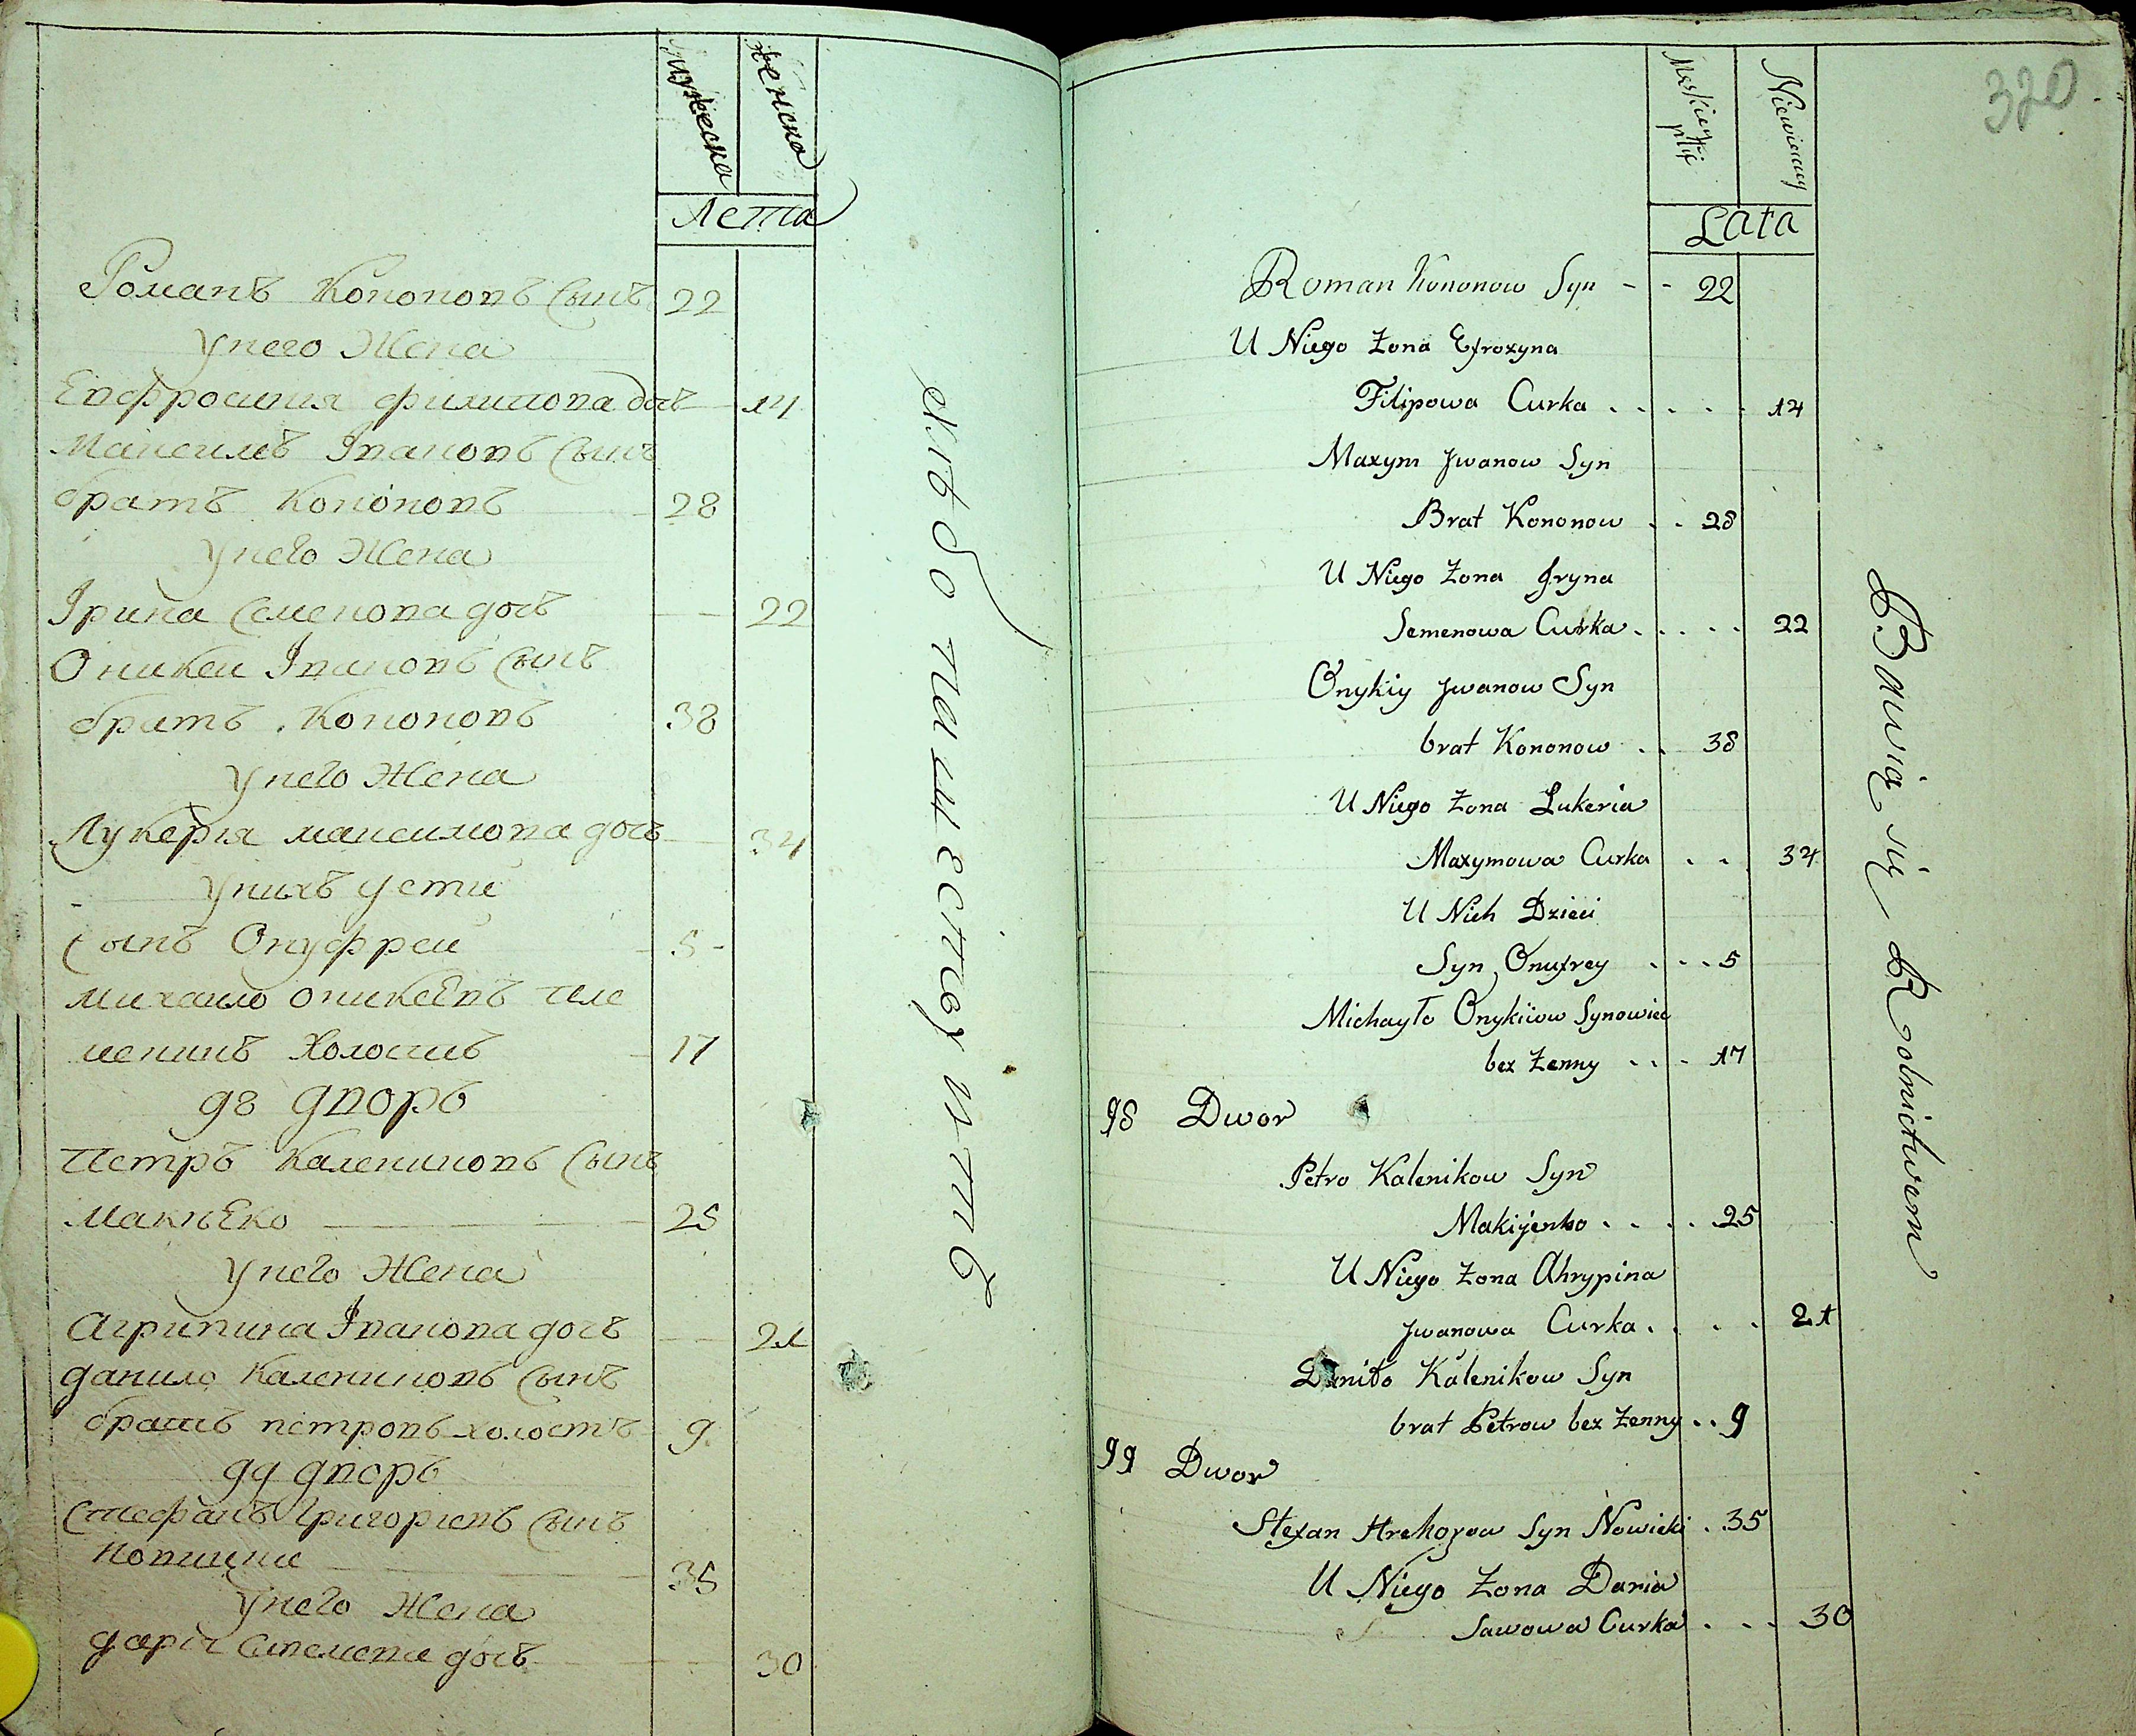 мужеска
женска
Лета
Романъ Кононовъ Сынъ 22
Унего Жена
Евфросиния филипова дочь 14
Максимъ Iвановъ Сынъ
братъ Кононовъ 28
Унего Жена
Iрина Семенова дочь 22
Оникеи Iвановъ Сынъ
братъ Кононовъ 38
Унего Жена
Лукерiя максимова дочь 34
Унихъ дети
Сынъ Онуфреи 5
михаило оникеевъ пле
меникъ Холостъ 17
98 дворъ
Петръ Калениковъ Сынъ
Макиеко 25
Унего Жена
Агрипина Iванова дочь 21
данило Калениковъ Сынъ
братъ петровъ холостъ 9
99 дворъ
Стефанъ григориевъ Сынъ
35
Унего Жена
дарiя дочь 30
хлебопашествуитъ
320
Męskiey płci
Niewieścey
Lata
Roman Kononow Syn - - 22
U Niego Żona Efrozyna
Filipowa Curka . . . . . 14
Maxym Jwanow Syn
Brat Kononow . . 28
U Niego Żona Jryna
Semenowa Curka . . . . . 22
Onykiy Jwanow Syn
brat Kononow . . 38
U Niego Żona Lukeria
Maxymowa Curka . . 34
U Nich Dzieci
Syn Onufrey . . . 5
Michayło Onykiiow Synowiec
bez Żenny . . . 17
98 Dwor
Petro Kalenikow Syn
Makijenko . . . . . 25
U Niego Żona Ahrypina
Jwanowa Curka . . . . 21
Daniło Kalenikow Syn
brat Petrow bez Żenny . . 9
99 Dwor
Stefan Hrehorow Syn Nowicki . 35
U Niego Żona Daria
Sawowa Curka . . . 30
Bawią się Rolnictwem